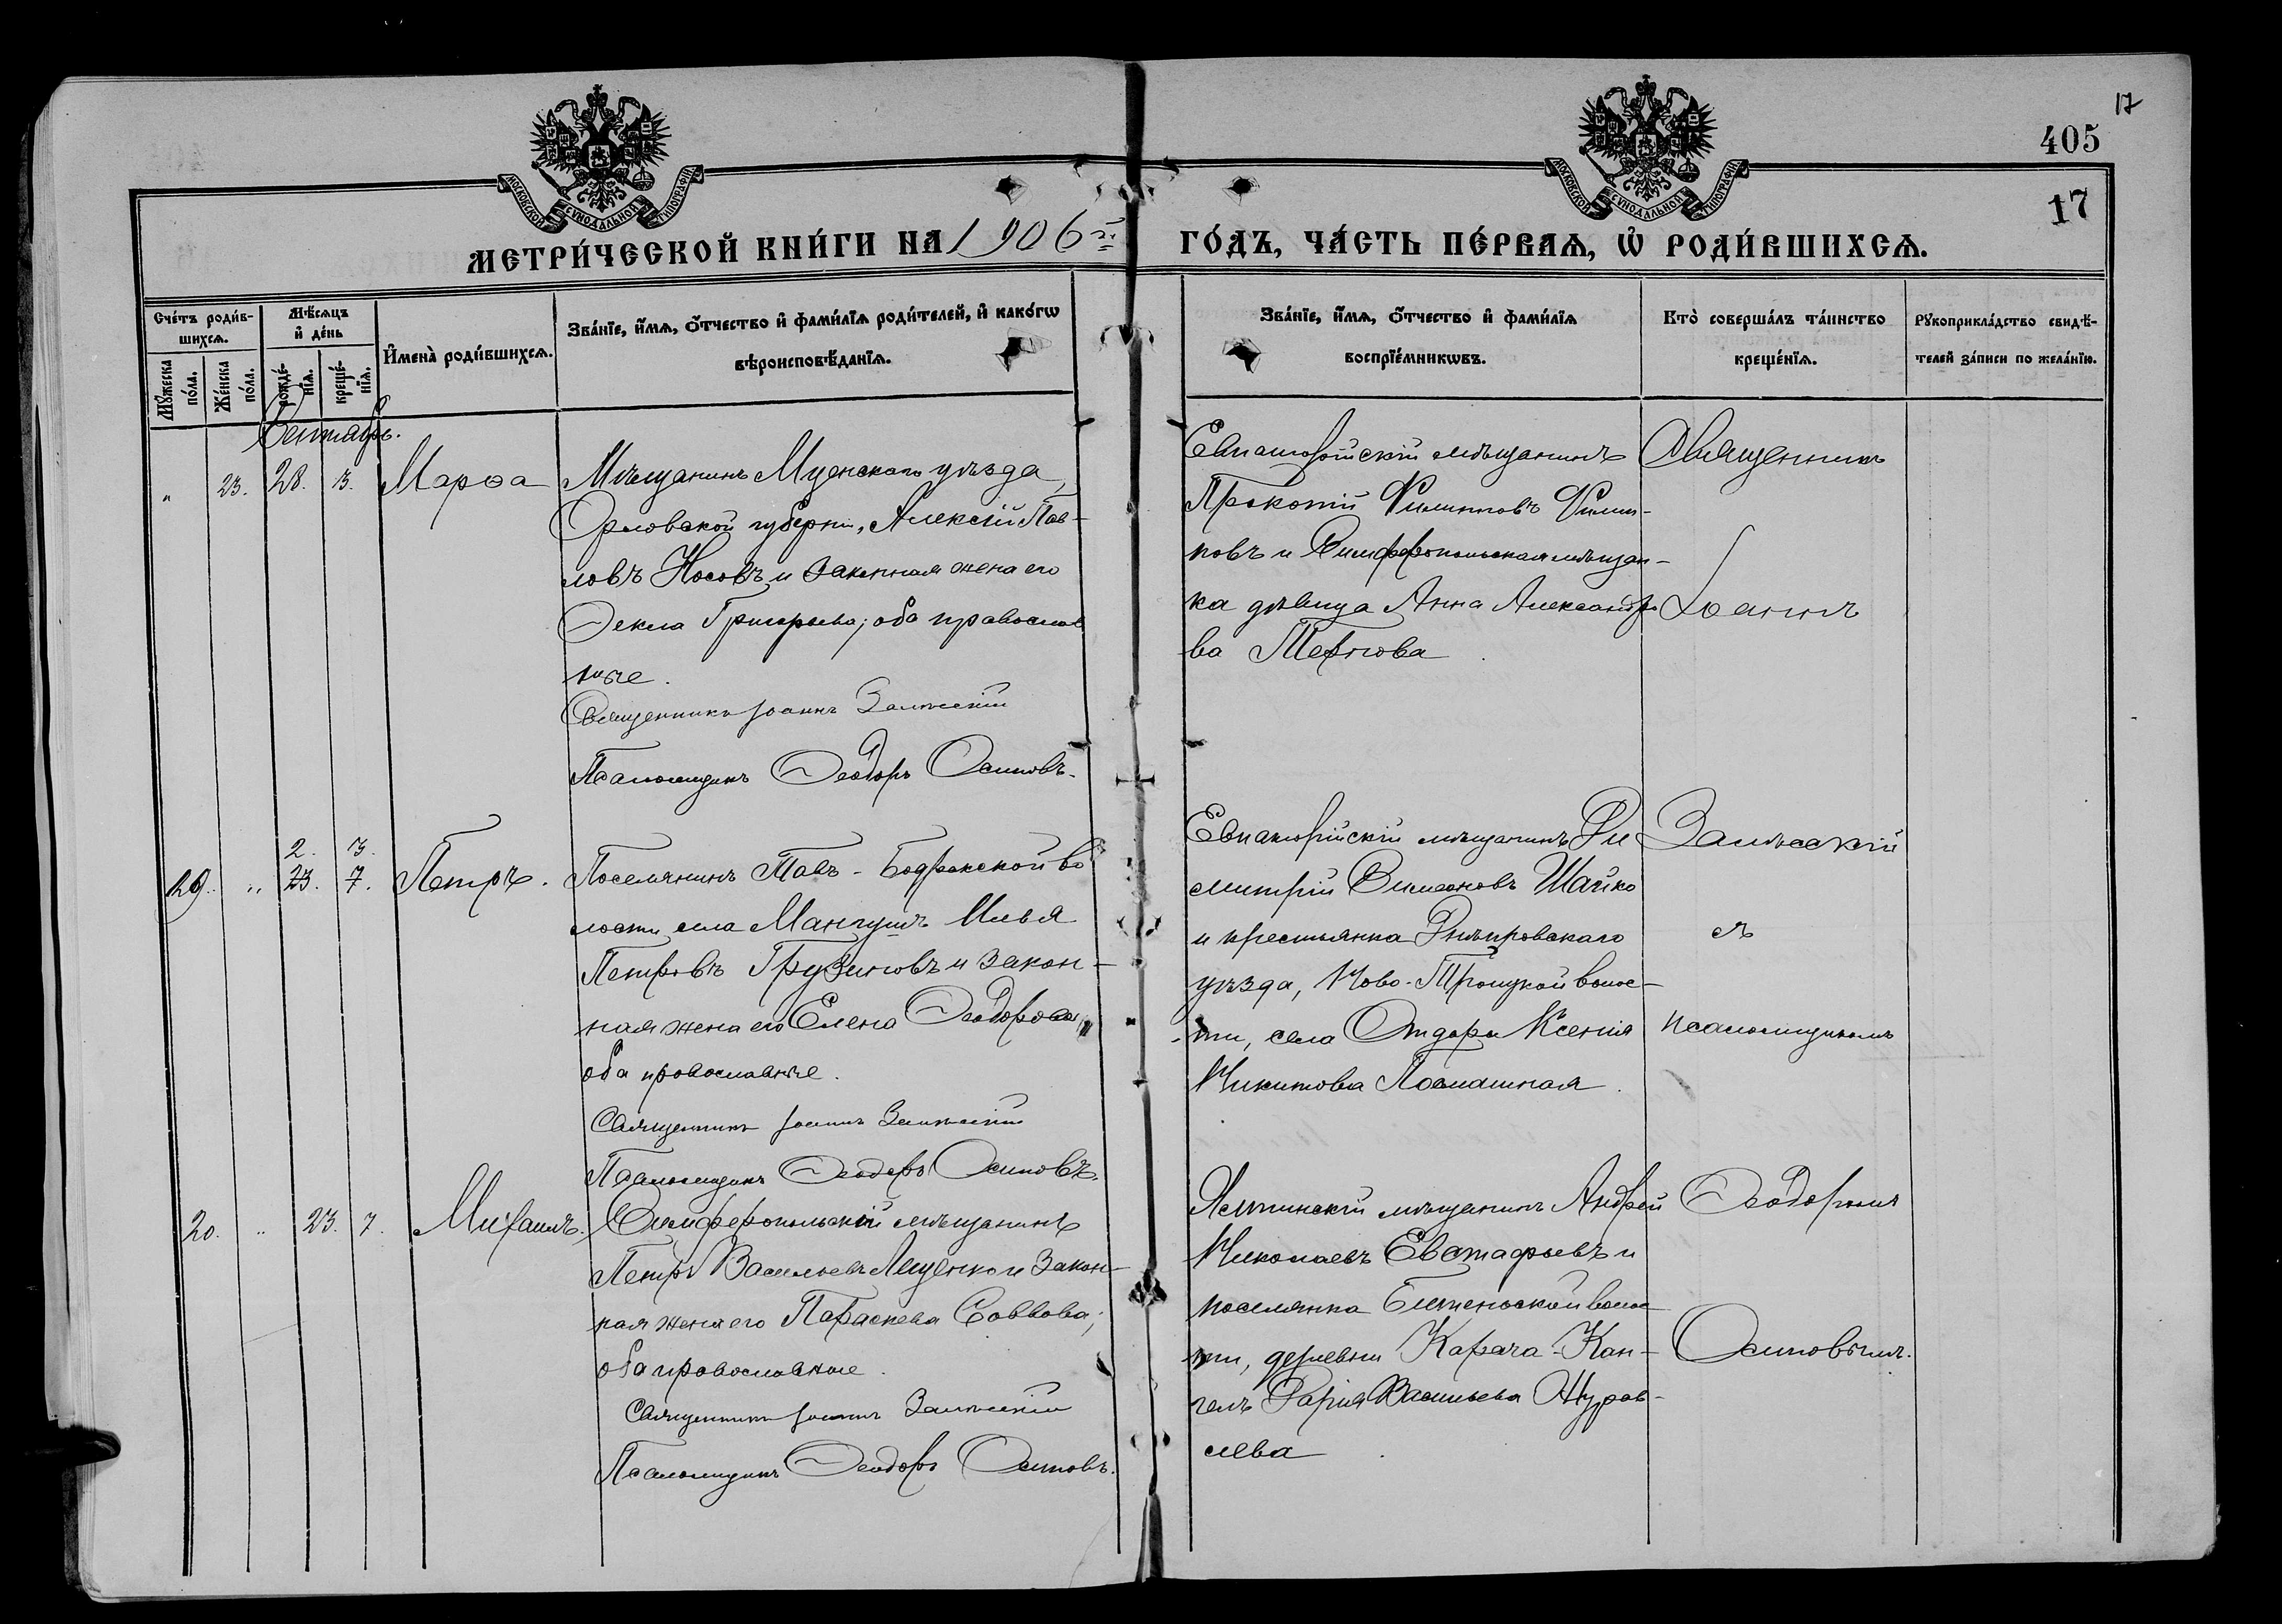 17
405
17
МОСКОВСКОЙ СѴНОДАЛЬНОЙ ТИПОГРАФІИ
МОСКОВСКОЙ СѴНОДАЛЬНОЙ ТИПОГРАФІИ
МЕТРИ́ЧЕСКОЙ КНИ́ГИ НА 1906й ГО́ДЪ, ЧА́СТЬ ПЕ́РВАѦ, Ѡ҆ РОДИ́ВШИХСѦ.
Сче́тъ роди́в-
шихсѧ.
Мꙋ́жеска по́ла.
Же́нска по́ла.
Мѣ́сѧцъ
и҆ де́нь
рожде́-
нїѧ.
креще́-
нїѧ.
И҆мена̀ роди́вшихсѧ.
Зва́нїе, и҆́мѧ, ѻ҆́тчество и҆ фами́лїѧ роди́телей, и҆ како́гѡ
вѣроисповѣ́данїѧ.
Зва́нїе, и҆́мѧ, ѻ҆́тчество и҆ фами́лїѧ
воспрїе́мникѡвъ.
Кто̀ соверша́лъ та́инство
креще́нїѧ.
Рꙋкоприкла́дство свидѣ́-
телей за́писи по жела́нїю.
Сентябрь.
„ 23. 28. 3. Марѳа
Мѣщанинъ Мценскаго уѣзда,
Орловской губерніи, Алексій Пав-
ловъ Носовъ и законная жена его
Ѳекла Григорьева; оба православ
ные.
Священникъ Іоаннъ Залѣсскій
Псаломщикъ Ѳеодоръ Осиповъ.
Евпаторійскій мѣщанинъ
Прокопій Филипповъ Филип-
повъ и Симферопольская мѣщан-
ка дѣвица Анна Александро
ва Пернова
Священникъ
Іоаннъ
2. 3.
19. „ 23. 7. Петръ.
Поселянинъ Тавъ-Бодракской во
лости, села Мангушъ Илья
Петровъ Грузиновъ и закон-
ная жена его Елена Ѳеодорова
оба православные.
Священникъ Іоаннъ Залѣсскій
Псаломщикъ Ѳеодоръ Осиповъ.
Евпаторійскій мѣщанинъ Ди
митрій Симеоновъ Шайко
и крестьянка Днѣпровскаго
уѣзда, Ново-Троицкой волос-
ти, села Отдары Ксенія
Никитова
Залѣсскій
съ
псаломщикомъ
20. „ 23. 7. Михаилъ.
Симферопольскій мѣщанинъ
Петръ Васильевъ Лещенко и закон-
ная жена его Параскева Саввова;
оба православные.
Священникъ Іоаннъ Залѣсскій
Псаломщикъ Ѳеодоръ Осиповъ.
Ялтинскій мѣщанинъ Андрей
Николаевъ Евстафьевъ и
поселянка волос
ти, деревни Карача-Кан-
гелъ Дарія Васильева Журав-
лева
Ѳеодоромъ
Осиповымъ.